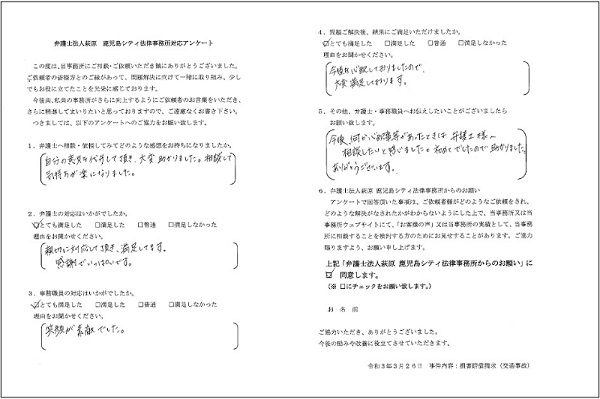 弁護士法人萩原　鹿児島シティ法律事務所対応アンケート
この度は、当事務所にご相談・ご依頼いただき誠にありがとうございました。
ご依頼者の皆様方とのご縁があって、問題解決に向けて一緒に取り組み、少し
でもお役に立てたことを光栄に感じております。
今後共、私共の事務所がさらに向上するようにご依頼者のお言葉をいただき、
さらに精進してまいりたいと思っておりますので、ご遠慮なくお書き下さい。
つきましては、以下のアンケートへのご協力をお願い致します。
1．弁護士へ相談・依頼してみてどのような感想をお持ちになりましたか。
自分の意見を代弁して頂き、大変助かりました。相談して
気持ちが楽になりました。
2．弁護士の対応はいかがでしたか。
☑とても満足した　□満足した　□普通　□満足しなかった
理由をお聞かせください。
親切に対応して頂き、満足してます。
感謝でいっぱいです。
3．事務職員の対応はいかがでしたか。
☑とても満足した　□満足した　□普通　□満足しなかった
理由をお聞かせください。
笑顔が素敵でした。
4．問題ご解決後、結果にご満足いただけましたか。
☑とても満足した　□満足した　□普通　□満足しなかった
理由をお聞かせください。
しておりましたので、
大変満足しております。
5．その他、弁護士・事務職員へお伝えしたいことがございましたら
お願い致します。
今後、何か があったときは 弁護士様へ
相談したいと感じました。初めてでしたので助かりました。
ありがとうございます。
6．弁護士法人萩原 鹿児島シティ法律事務所からのお願い
アンケートで回答頂いた事項は、ご依頼者様がどのようなご依頼をされ、
どのような解決がなされたかがわからないようにした上で、当事務所又は当
事務所ウェブサイトにて、「お客様の声」又は当事務所の実績として、当事務
所に相談することを検討する方のためにお見せすることがあります。ご協力
賜りますよう、お願い申し上げます。
上記「弁護士法人萩原 鹿児島シティ法律事務所からのお願い」に
☑ 同意します。
（※ □にチェックをお願い致します。）
お 名 前
ご協力いただき、ありがとうございました。
今後の励みや改善に役立てさせていただきます。
令和3年3月26日　事件内容：損害賠償請求（交通事故）